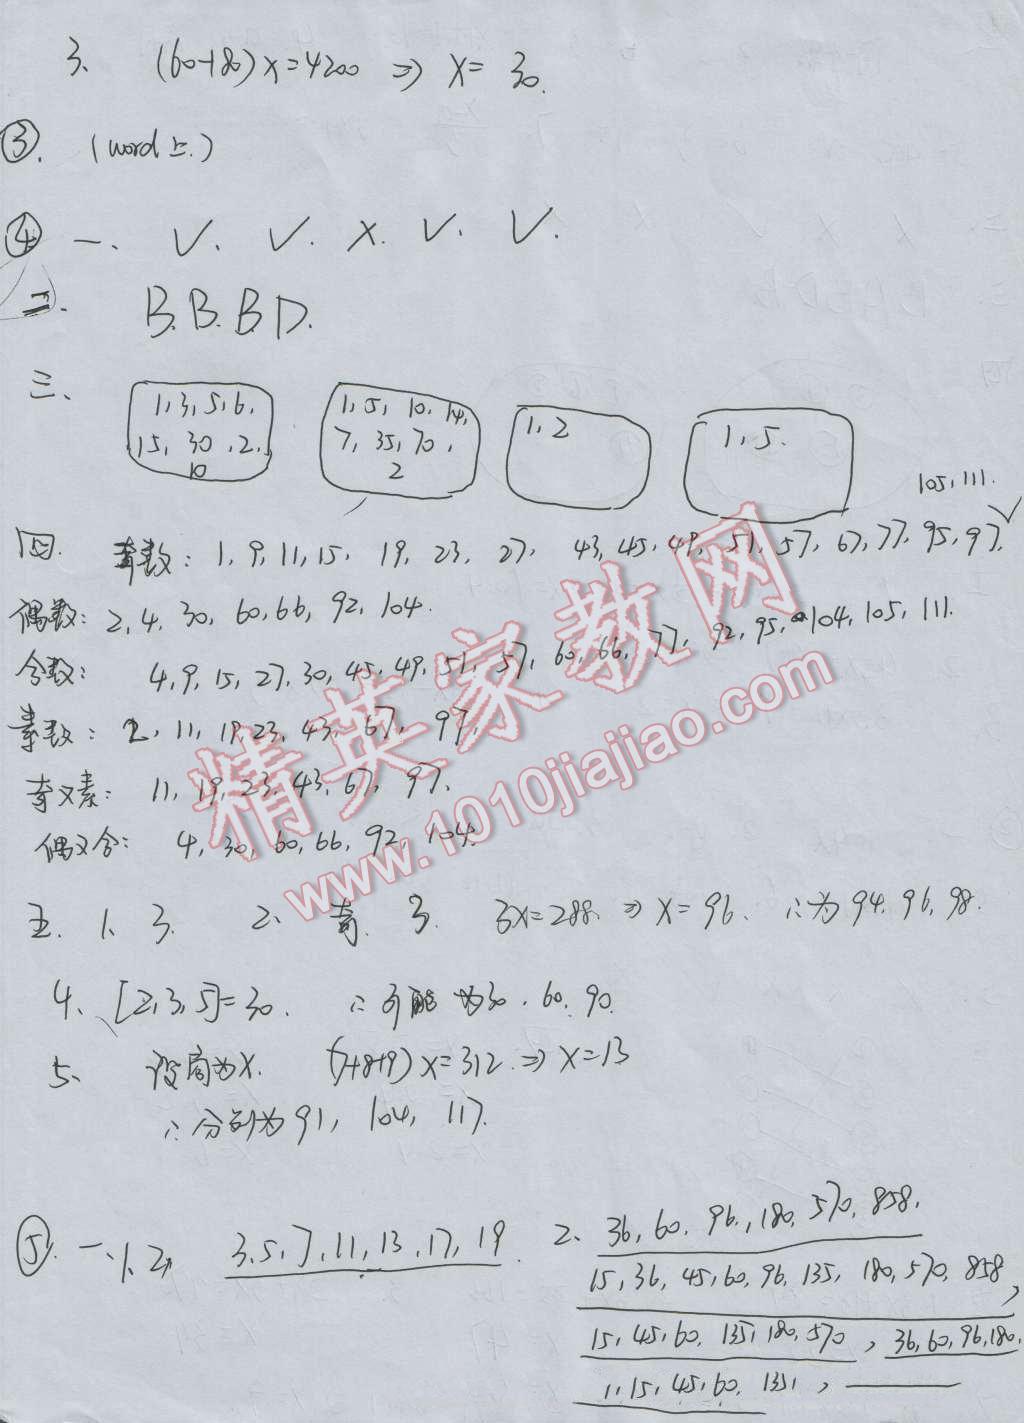 3、 (60+80)x=4200 ⇒ x= 30.
③. (word上.)
④ 一、 √. √. ×. √. √.
二. B. B. B D.
三、 1,3,5,6, 15, 30, 2, 10
1,5, 10, 14, 7, 35, 70, 2
1,2
1,5.
105, 111.
四. 奇数: 1,9,11,15, 19, 23, 27, 43,45,49,51,57,67,77,95,97. √
偶数: 2,4,30,60,66,92,104.
合数: 4,9,15,27,30,45,49,51,57,60,66,77,92,95,104,105,111.
素数: 2, 11, 19,23,43,67,97.
奇又素: 11, 19,23,43,67,97.
偶又合: 4,30,60,66,92,104.
五. 1、3. 2、奇. 3. 3x=288. ⇒ x=96. ∴为94,96,98.
4、[2,3,5]=30. ∴可能为30、60、90.
5、 设商为x. (7+8+9)x=312 ⇒ x=13
∴分别为91, 104, 117.
⑤. 一、1、2, 3,5,7,11,13,17,19. 2、36,60,96,180,570,858,
15,36,45,60,96,135,180,570,858,
15,45,60,135,180,570, 36,60,96,180.
1,15,45,60,135,
精英家教网
www.1010jiajiao.com